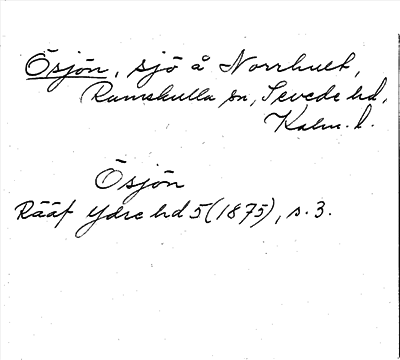 Ösjön, sjö å Norrhult,
Rumskulla sn, Sevede hd,
Kalm. l.
Ösjön
Rääf Ydre hd 5 (1875), s. 3.